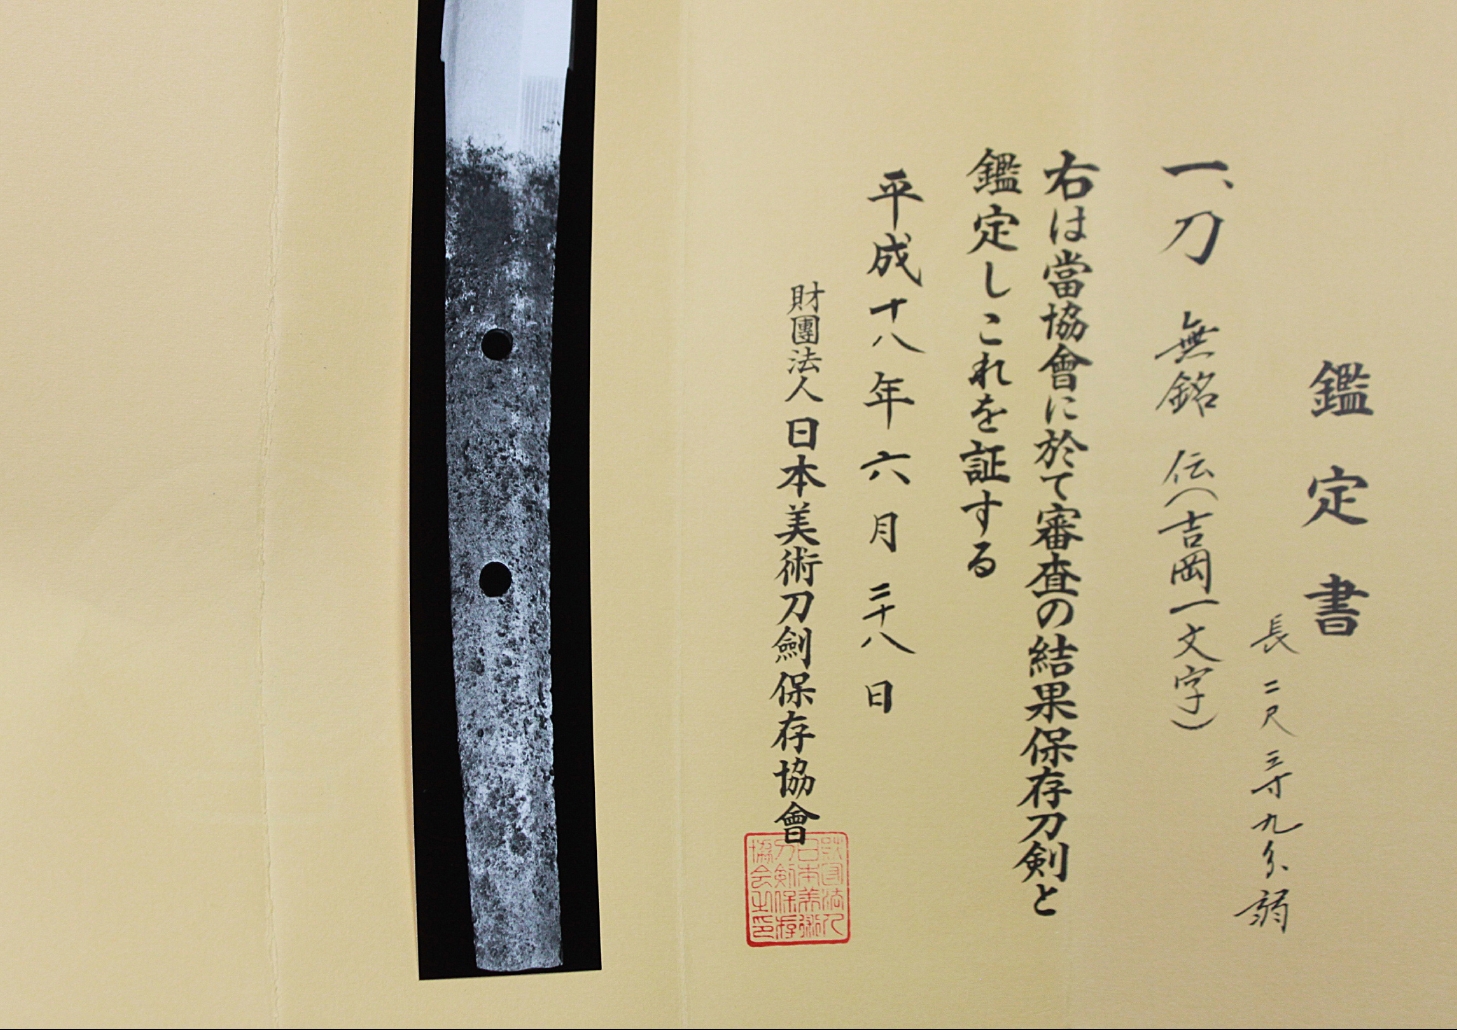 鑑定書
長二尺三寸九分弱
一、刀 無銘 伝(吉岡一文字)
右は當協會に於て審査の結果保存刀剣と
鑑定しこれを証する
平成十八年六月二十八日
財團法人日本美術刀劍保存協會
財団法人
日本美術
刀剣保存
協会之印